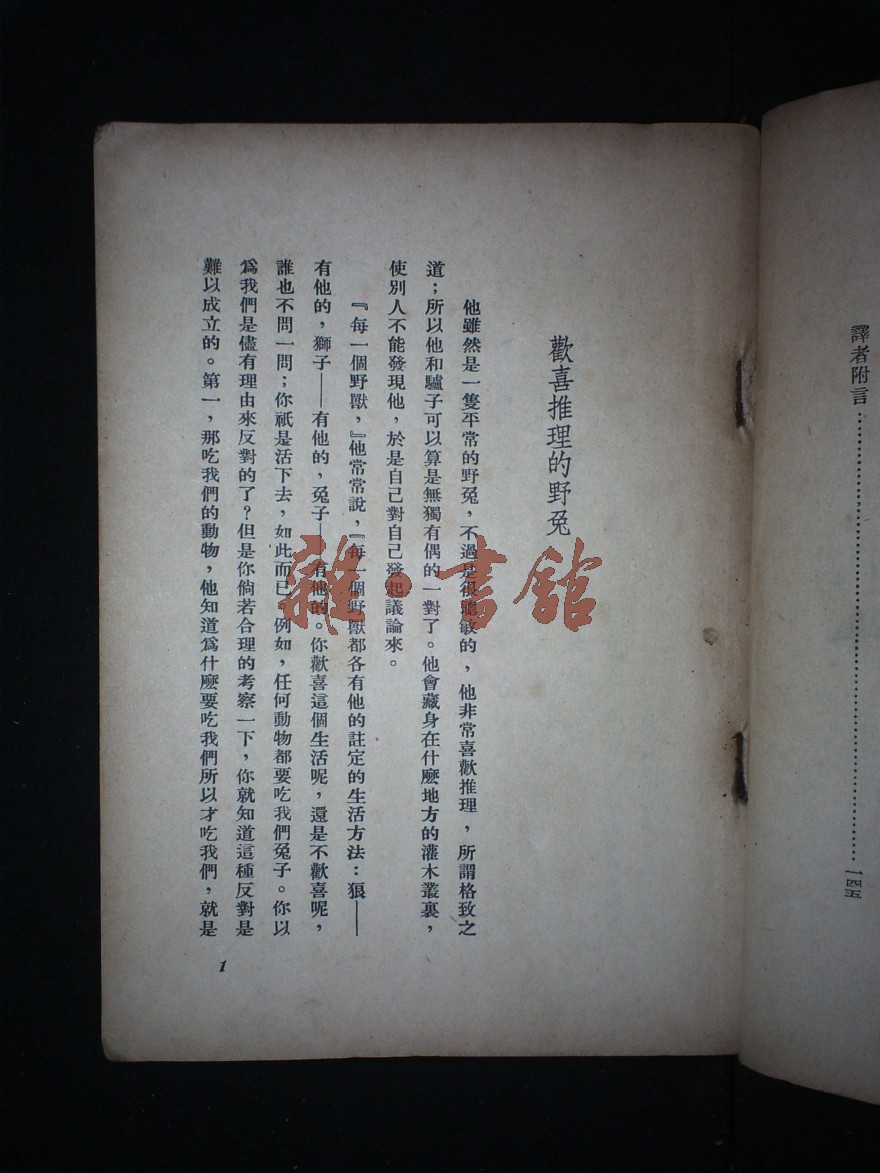 譯者附言……………………………………一四五
歡喜推理的野兔
他雖然是一隻平常的野兔，不過是很聰敏的，他非常喜歡推理，所謂格致之
道；所以他和驢子可以算是無獨有偶的一對了。他會藏身在什麼地方的灌木叢裏，
使別人不能發現他，於是自己對自己發起議論來。
『每一個野獸，』他常常說，『每一個野獸都各有他的註定的生活方法：狼——
有他的，獅子——有他的，兔子——有他的。你歡喜這個生活呢，還是不歡喜呢，
誰也不問一問；你祇是活下去，如此而已。例如，任何動物都要吃我們兔子。你以
爲我們是儘有理由來反對的了？但是你倘若合理的考察一下，你就知道這種反對是
難以成立的。第一，那吃我們的動物，他知道爲什麼要吃我們所以才吃我們，就是
1
雜·書館